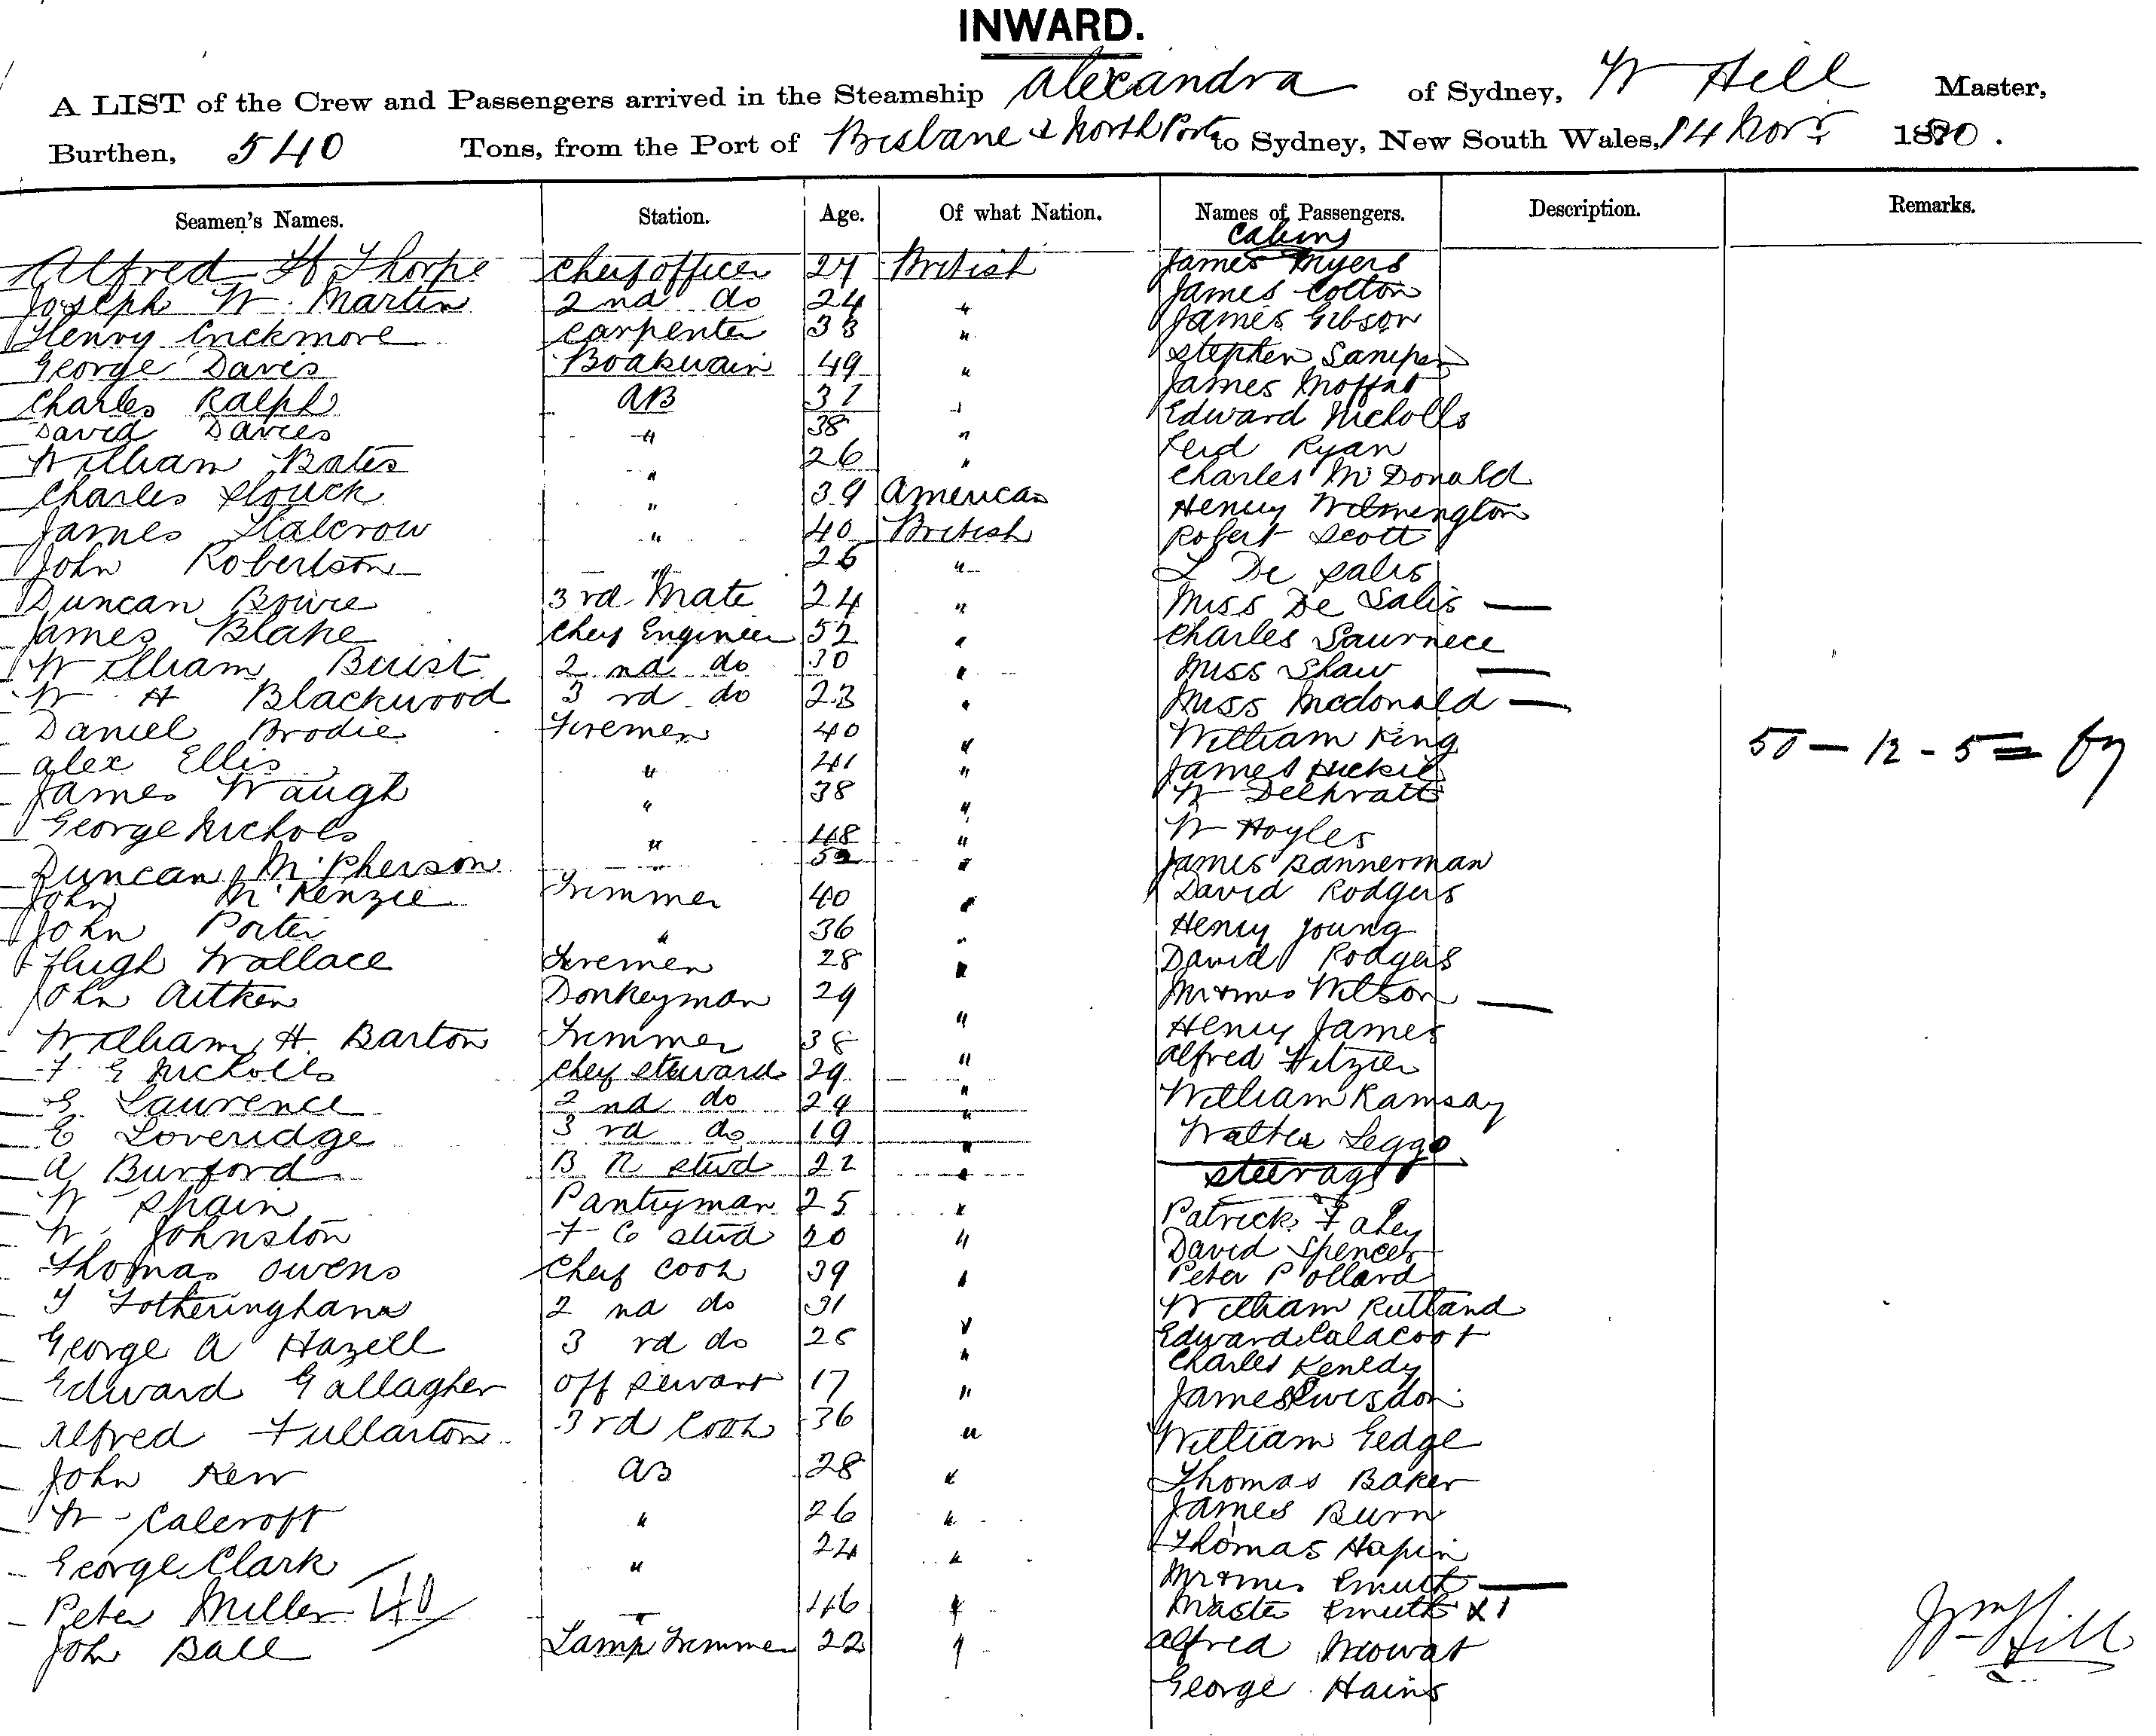 INWARD.
A LIST of the Crew and Passengers arrived in the Steamship Alexandra of Sydney, W Hill Master,
Burthen, 540 Tons, from the Port of Brisbane & North Ports to Sydney, New South Wales, 14 Novr 1880.
Seamen's Names. Station. Age. Of what Nation. Names of Passengers. Description. Remarks.
Cabins
Alfred H Thorpe Chief officer 27 British James Myers
Joseph W. Martin 2nd do 24 " James Colton
Henry Inckmore carpenter 38 " James Gibson
George Davis Boatswain 49 " Stephen
Charles Ralph AB 31 " James Moffat
David Davies " 38 " Edward Nicholls
William Bates " 26 " Ryan
Charles Slouck " 39 American Charles McDonald
James Halcrow " 40 British Henry Wilmington
John Robertson " 26 " Robert Scott
L De Salis
Duncan Bowie 3rd Mate 24 " Miss De Salis —
James Blake Chief Engineer 52 " Charles
William Buist 2nd do 30 " Miss Shaw —
W H Blackwood 3rd do 23 " Miss Mcdonald —
Daniel Brodie Firemen 40 " William King
Alex Ellis " 41 " James Hickie
James Waugh " 38 " W
George Nichols " 48 " W Hoyles
Duncan McPherson " 52 " James Bannerman
John McKenzie Trimmer 40 " David Rodgers
John Porter " 36 " Henry Young
Hugh Wallace Firemen 28 " David Rodgers
John Aitken Donkeyman 29 " Mr & Mrs Wilson —
William H. Barton Trimmer 38 " Henry James
F E Nicholls Chief Steward 29 " Alfred
E Laurence 2nd do 24 " William Ramsay
E Loveridge 3rd do 19 " Walter Leggo
A Burford B R Stwd 22 " Steerage
W Spain Pantryman 25 " Patrick Fahey
W. Johnston F C Stwd 20 " David Spencer
Thomas Owens Chief Cook 39 " Peter Pollard
T Fotheringham 2nd do 31 " William Rutland
George A Hazell 3rd do 26 " Edward Calacoot
Charles Kenedy
Edward Gallagher off servant 17 " James
Alfred Fullarton 3rd Cook 36 " William Gedge
John Kerr AB 28 " Thomas Baker
W Calcroft " 26 " James Burn
George Clark " 24 " Thomas
Mr & Mrs Smith —
Peter Miller 40 " 46 " Master Smith X1
John Ball Lamp Trimmer 22 " Alfred Mowat
George Hains
50 – 12 – 5 =
Wm Hill